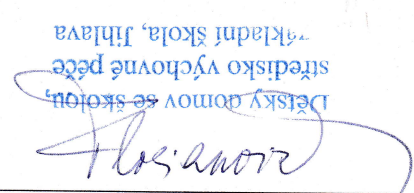 Dětský domov se školou,
středisko výchovné péče
základní škola, Jihlava